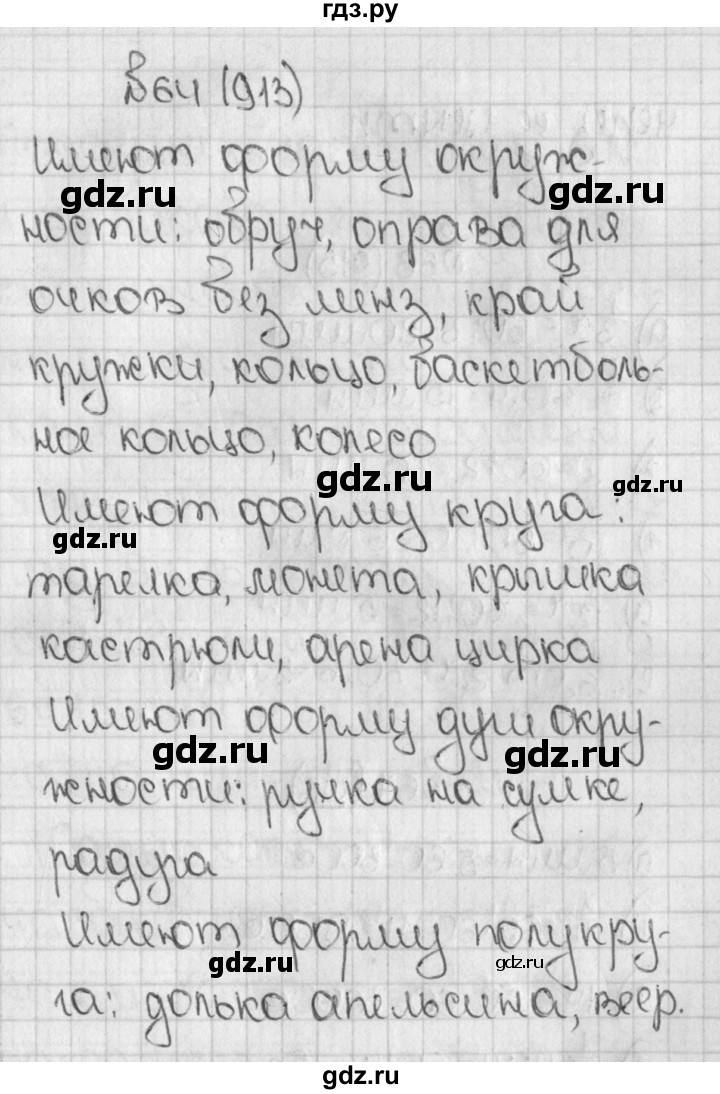 гдз.ру
В64 (913)
Имеют форму окруж-
gdz.ru gdz.ru
ности: обруч, оправа для
очков без линз, край
кружки, кольцо, баскетболь-
ное кольцо, колесо
gdz.ru gdz.ru
Имеют форму круга:
gdz.ru
тарелка, монета, крышка
кастрюли, арена цирка
Имеют форму дуги окру-
gdz.ru gdz.ru
жности: ручка на сумке,
радуга
Имеют форму полукру-
gdz.ru gdz.ru
га: долька апельсина, веер.
gdz.ru